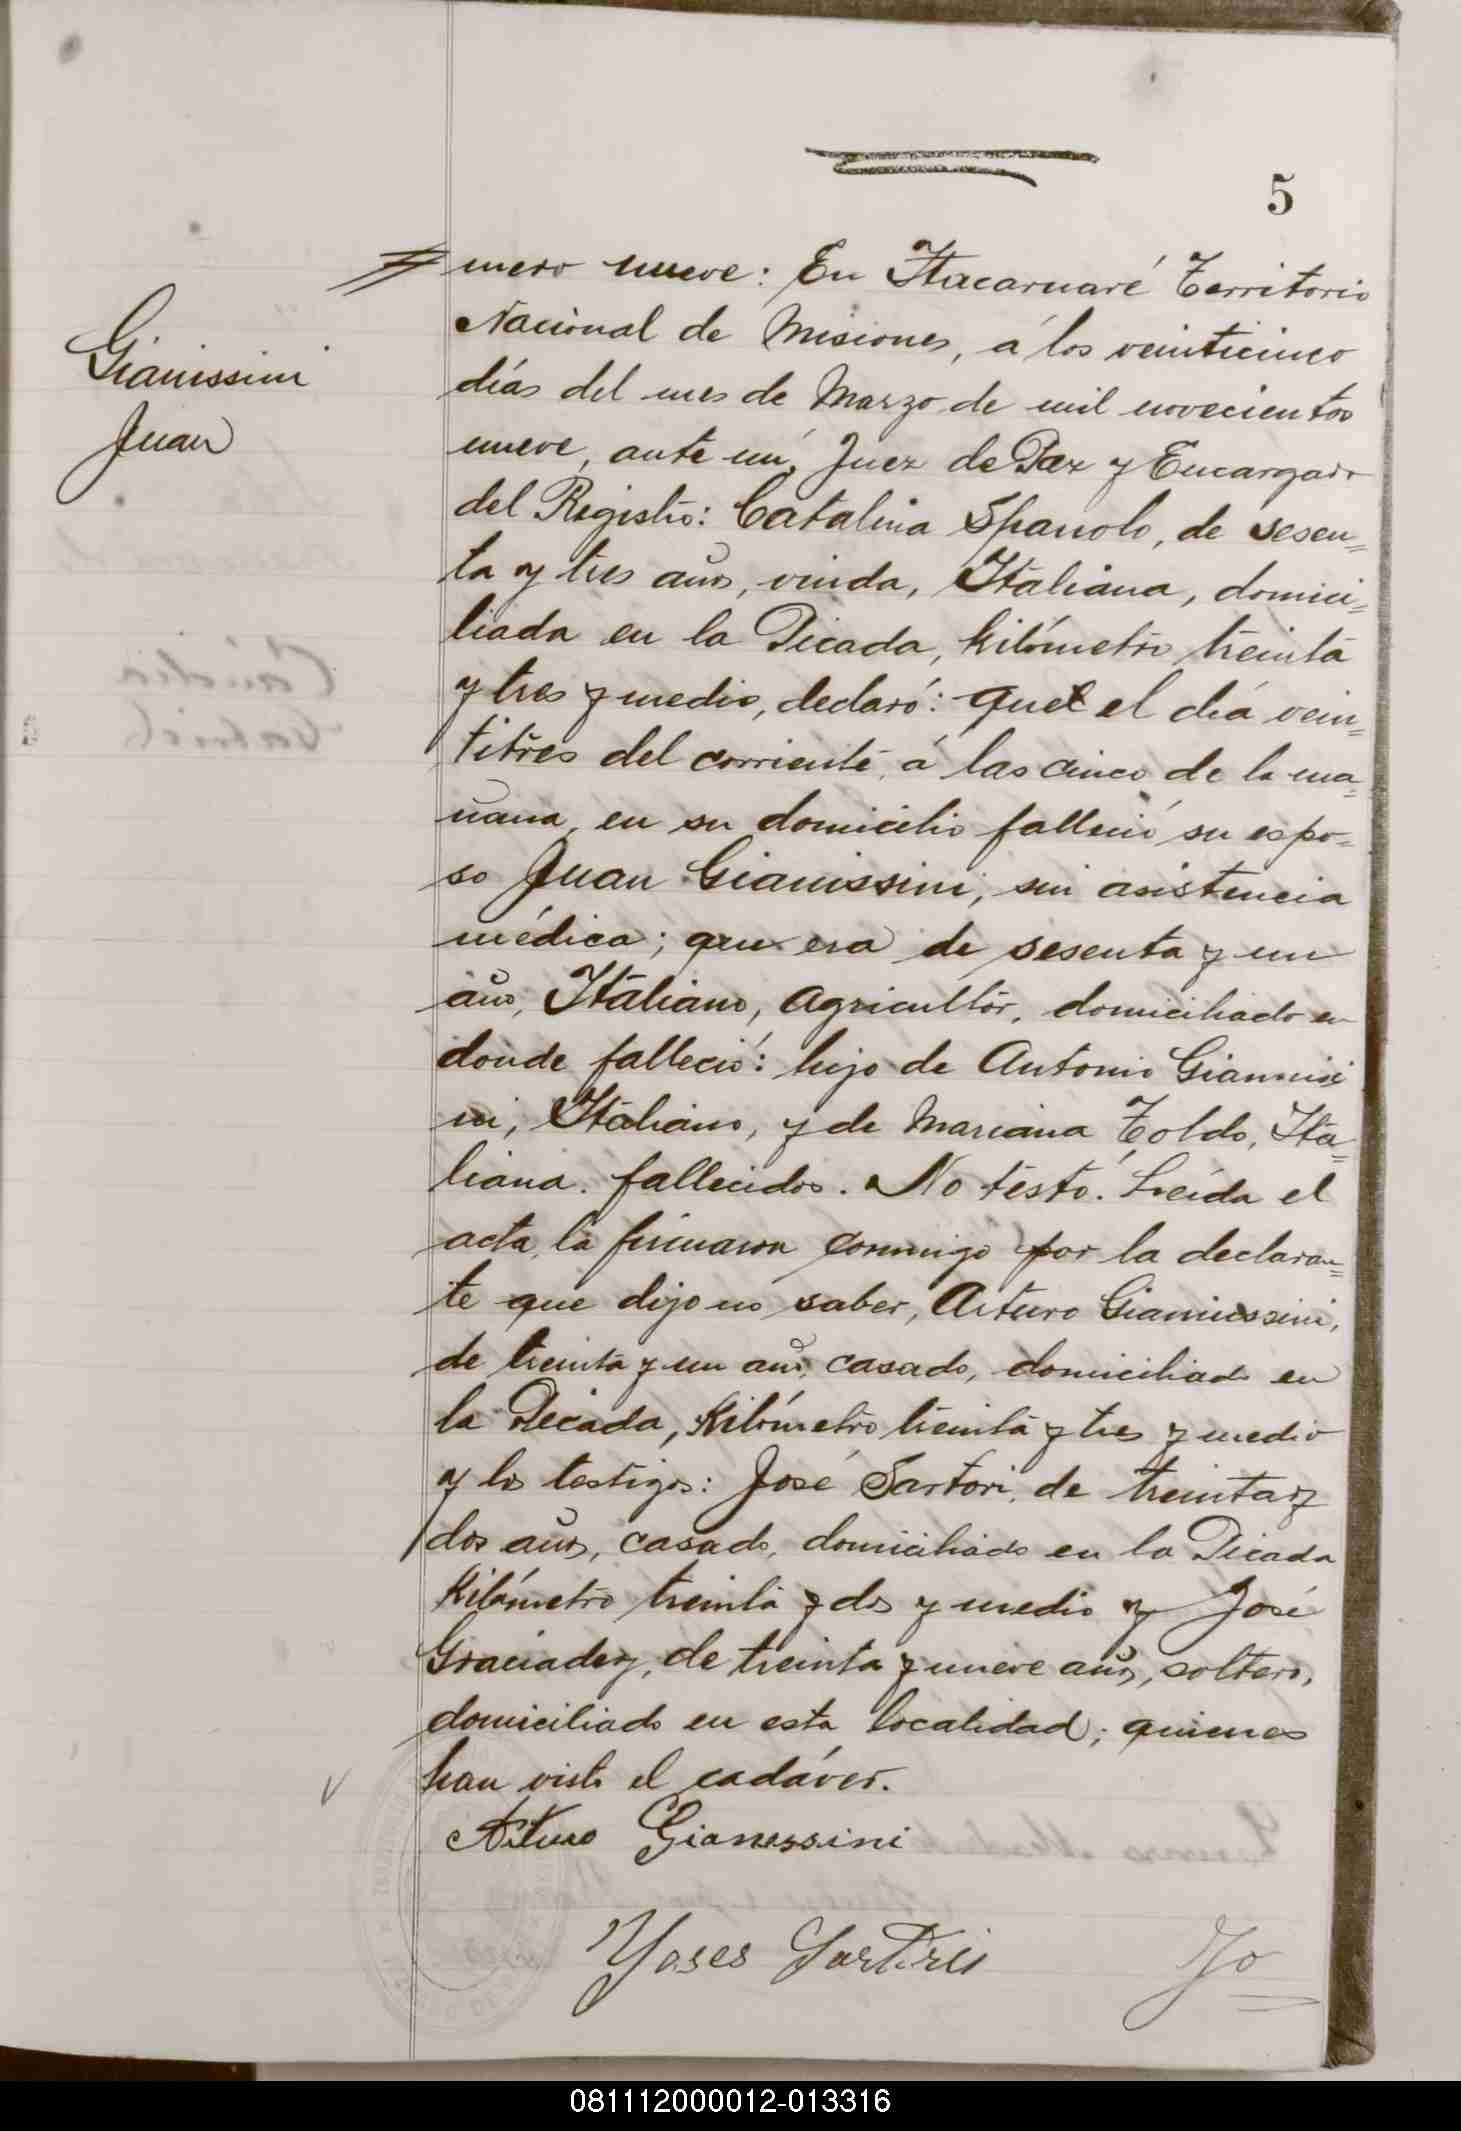 5
mero nueve: En Itacaruaré Territorio
Nacional de Misiones, á los veinticinco
días del mes de Marzo de mil novecientos
nueve, ante mí, Juez de Paz y Encargado
del Registro: Catalina Spanolo, de sesen=
ta y tres años, viuda, Italiana, domici=
liada en la Picada, kilómetro treinta
y tres y medio, declaró: que el día vein=
titres del corriente á las cinco de la ma=
ñana, en su domicilio falleció su espo=
so Juan Gianissini, sin asistencia
médica; que era de sesenta y un
años, Italiano, agricultor, domiciliado en
donde falleció: hijo de Antonio Giannisi
ni, Italiano, y de Mariana Toldo, Ita=
liana. fallecidos. No testó. Leída el
acta, la firmaron conmigo por la declaran=
te que dijo no saber, Arturo Gianissini,
de treinta y un años, casado, domiciliado en
la Picada, Kilómetro treinta y tres y medio
y los testigos: José Sartori, de treinta y
dos años, casado, domiciliado en la Picada
Kilómetro treinta y dos y medio y José
Graciadey, de treinta y nueve años, soltero,
domiciliado en esta localidad; quienes
han visto el cadáver.
Gianissini
Juan
Arturo Gianessini
Yoses Sartori
Jo
081112000012-013316